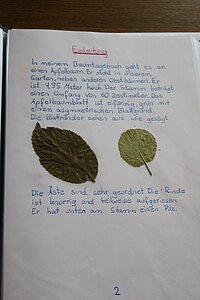 Einleitung
In meinem Baumtagebuch geht es um
einen Apfelbaum. Er steht in unserem
Garten, neben anderen Obstbäumen. Er
ist 4,95 Meter hoch. Der Stamm beträgt
einen Umfang von 60 Zentimeter. Das
Apfelbaumblatt ist eiförmig, grün mit
einem asymmetrischen Blattgrund.
Die Blattränder sehen aus wie gesägt.
Die Äste sind sehr geordnet. Die Rinde
ist knorrig und teilweise aufgerissen.
Er hat unten am Stamm einen Pilz.
2